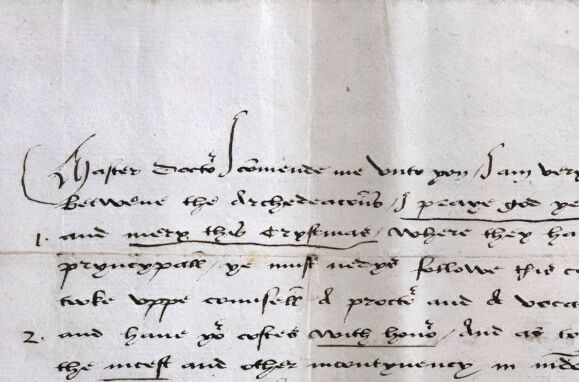 Master Docto^r I comende me vnto you / I am very
Betwene the Archedeacons / I praye god ye
1. and mery this Crystmas / where they ha
pryncypall / ye must nedys followe this c
take vppe counsell / A procto^r and A voca
2. and haue yo^r costes with hono^r / And as to
the incest and other incontynency in